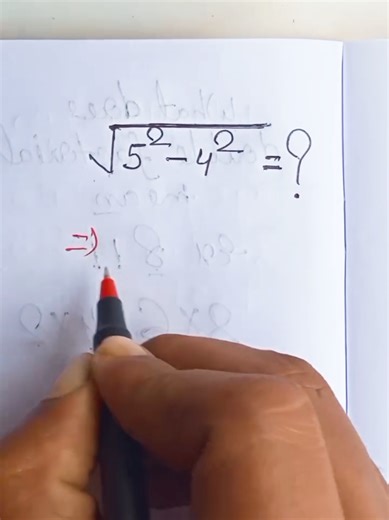 √5² - 4² = ?
=>